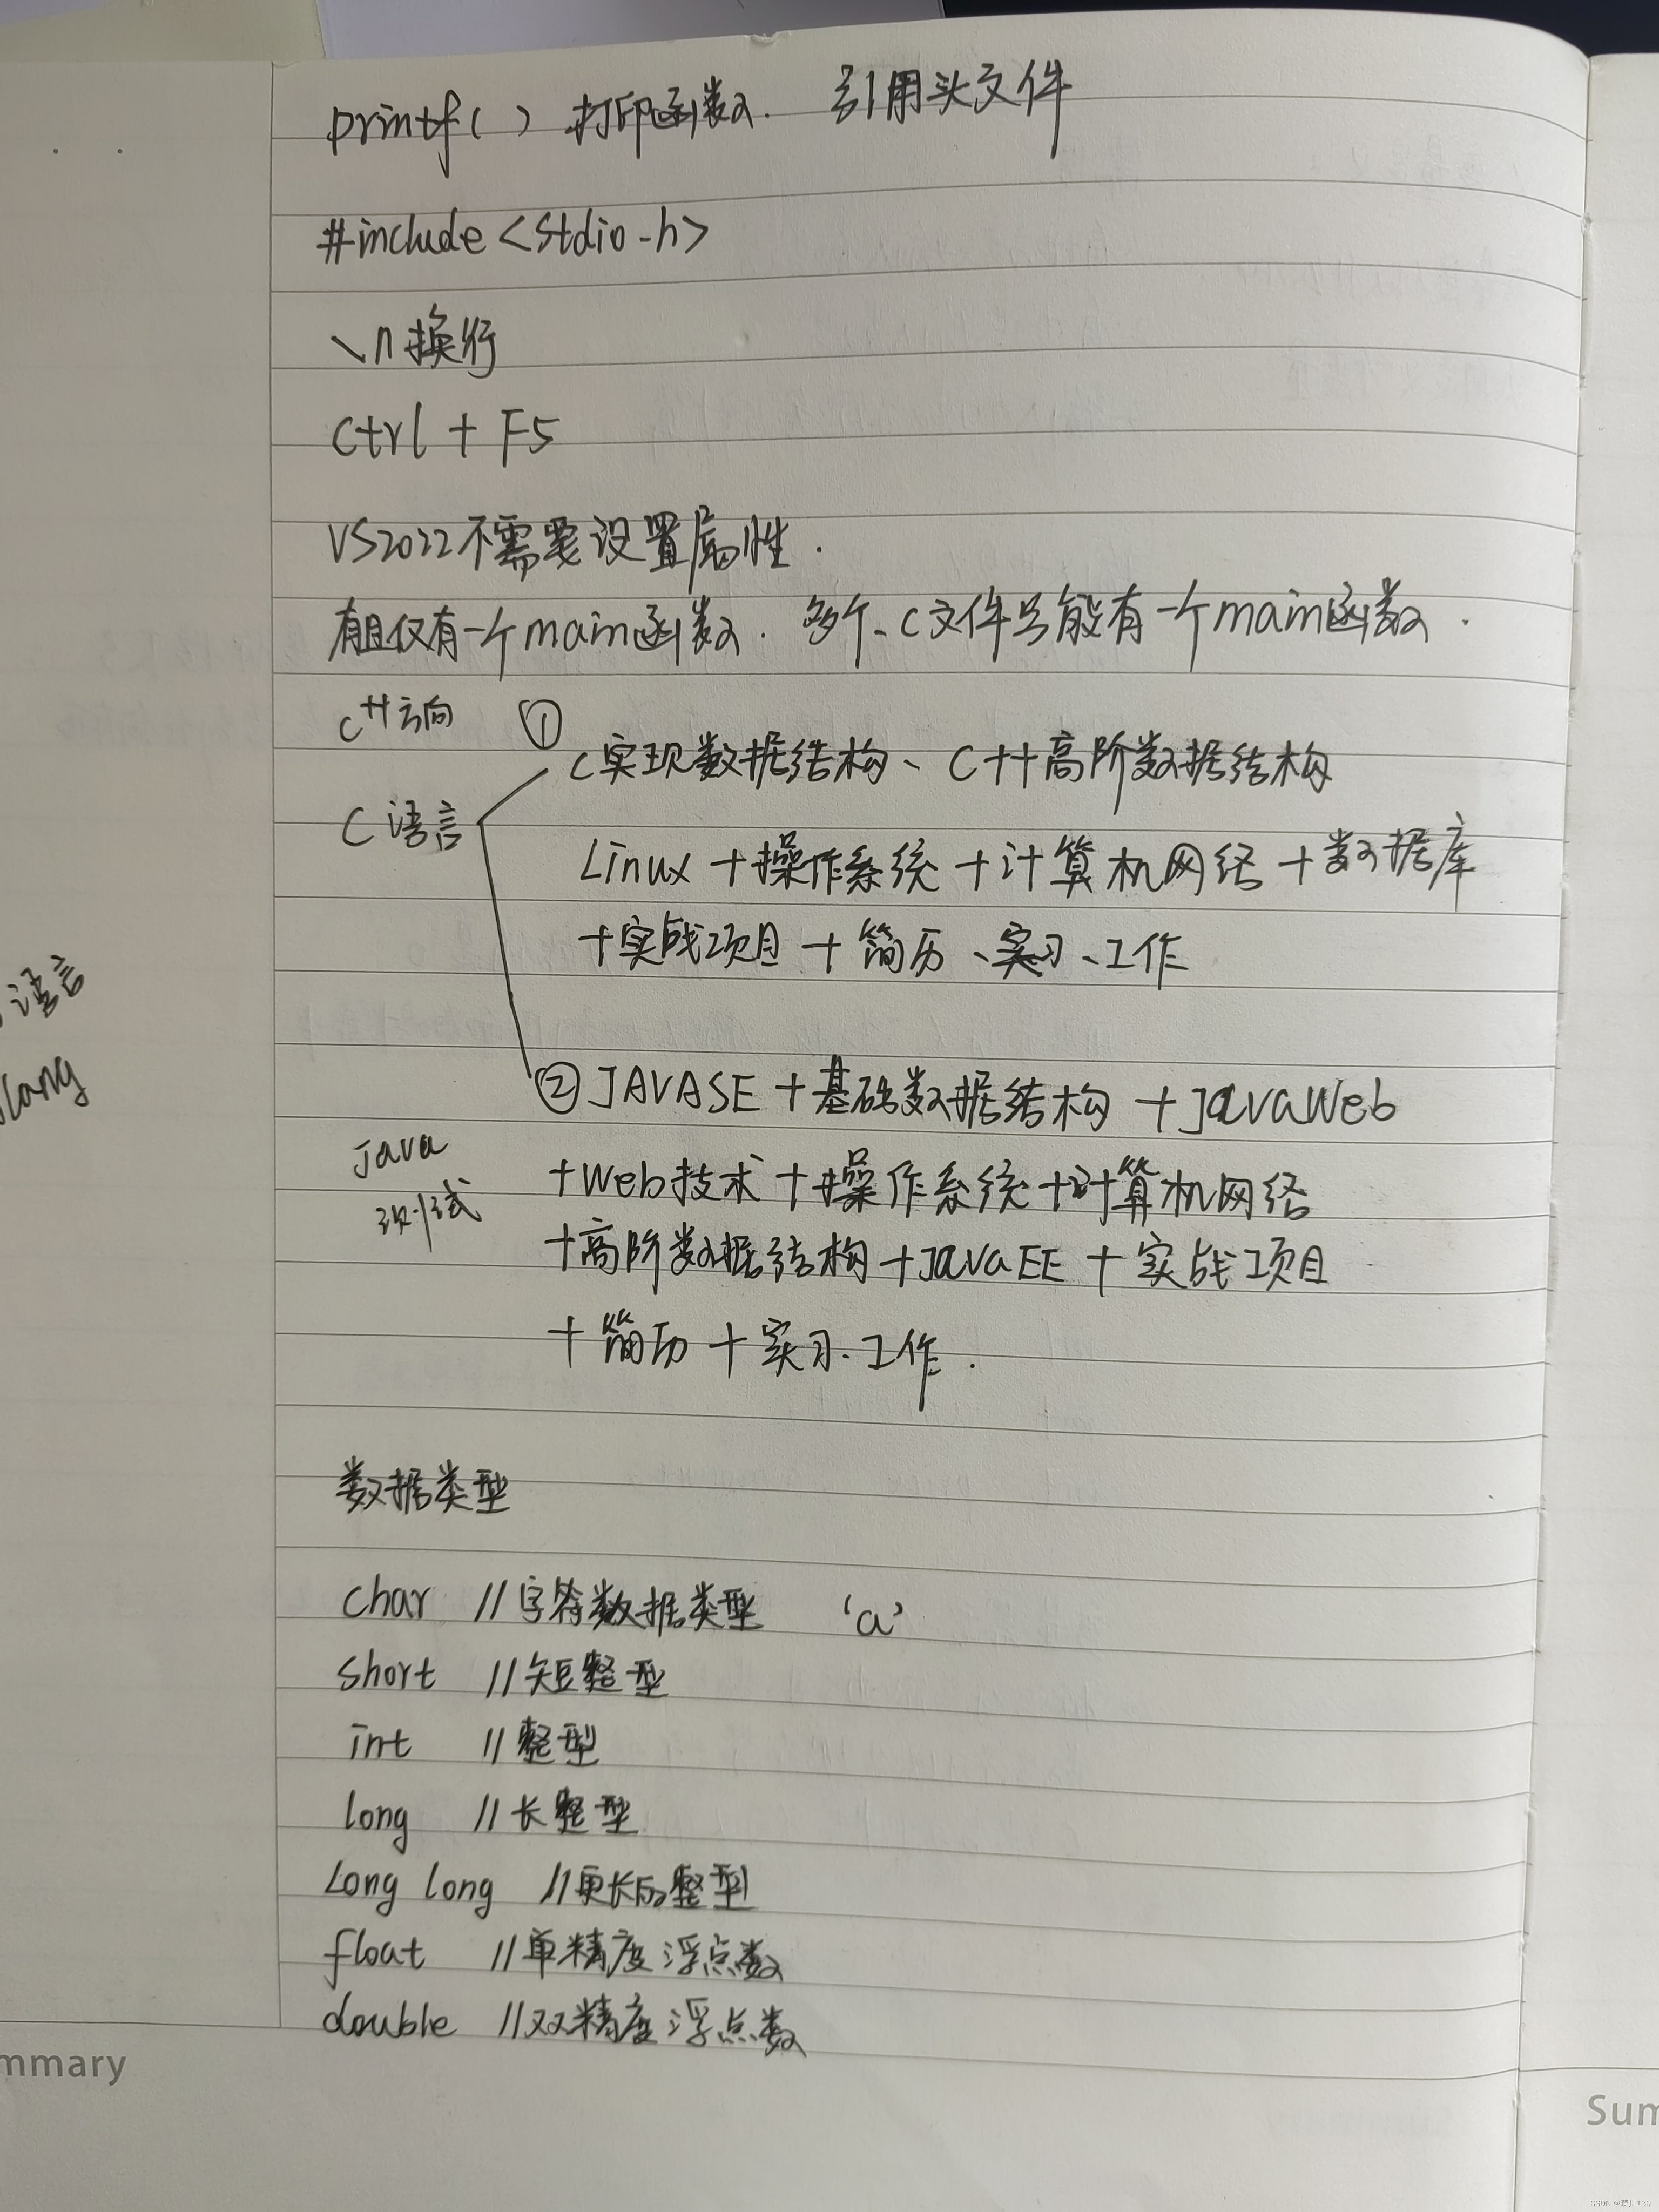 printf( ) 打印函数. 引用头文件
#include <stdio.h>
\n 换行
Ctrl + F5
VS2022不需要设置属性.
有且仅有一个main函数. 多个.c文件只能有一个main函数.
C++方向 ①
C实现数据结构、C++高阶数据结构
C语言
Linux + 操作系统 + 计算机网络 + 数据库
+ 实战项目 + 简历、实习、工作
语言
lang
② JAVASE + 基础数据结构 + JavaWeb
Java
测试
+ Web技术 + 操作系统 + 计算机网络
+ 高阶数据结构 + JavaEE + 实战项目
+ 简历 + 实习.工作.
数据类型
char //字符数据类型 'a'
short //短整型
int //整型
long //长整型
Long long //更长的整型
float //单精度浮点数
double //双精度浮点数
mmary
Sum
CSDN @晴川130